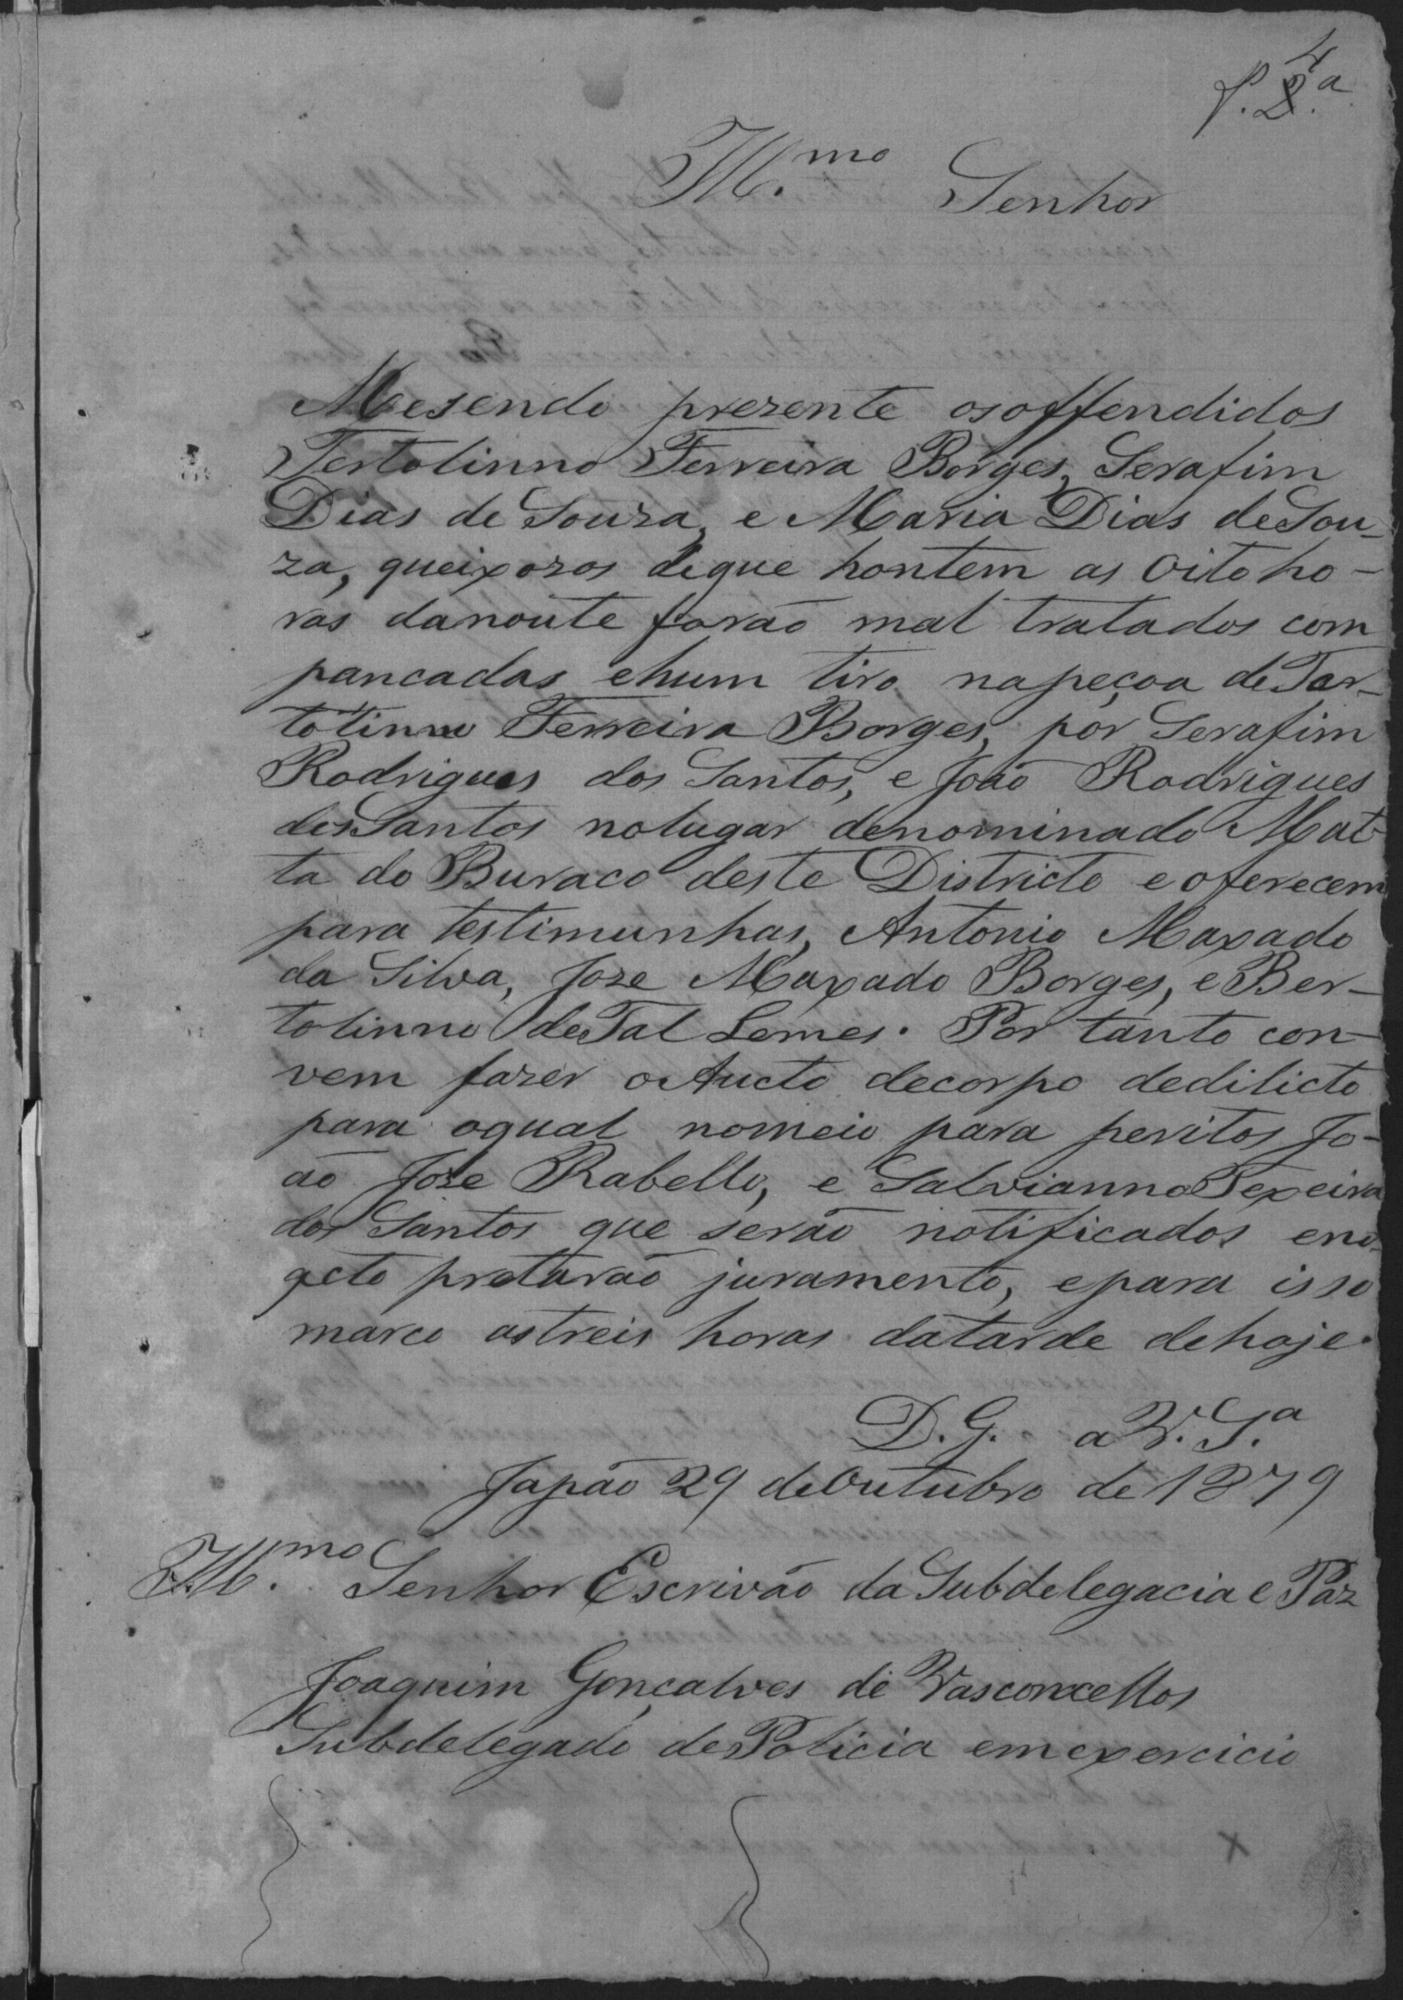 f. 4ª
Ill.mo Senhor
Mesendo prezente osoffendidos
Tertolinno Ferreira Borges, Serafim
Dias de Souza, e Maria Dias de Sou-
za, queixozos deque hontem as Oito ho-
ras danoute forão mal tratados com
pancadas ehum tiro napeçoa de Ter-
tolinno Ferreira Borges, por Serafim
Rodrigues dos Santos, e João Rodrigues
dos Santos nolugar denominado Mat-
ta do Buraco deste Districto e oferecem
para testimunhas, Antonio Maxado
da Silva, Joze Maxado Borges, e Ber-
tolinno deTal Lemes. Por tanto con-
vem fazer oAucto decorpo dedilicto
para oqual nomeio para peritos Jo-
ão Joze Rabello, e Salvianno Texeira
dos Santos que serão notificados eno
acto pretarão juramento, epara isso
marco astreis horas datarde dehoje.
D. G. a V. S.ª
Japão 29 deOutubro de 1879
Ill.mo Senhor Escrivão da Subdelegacia e Paz
Joaquim Gonçalves de Vasconcellos
Subdelegado dePolicia emexercicio